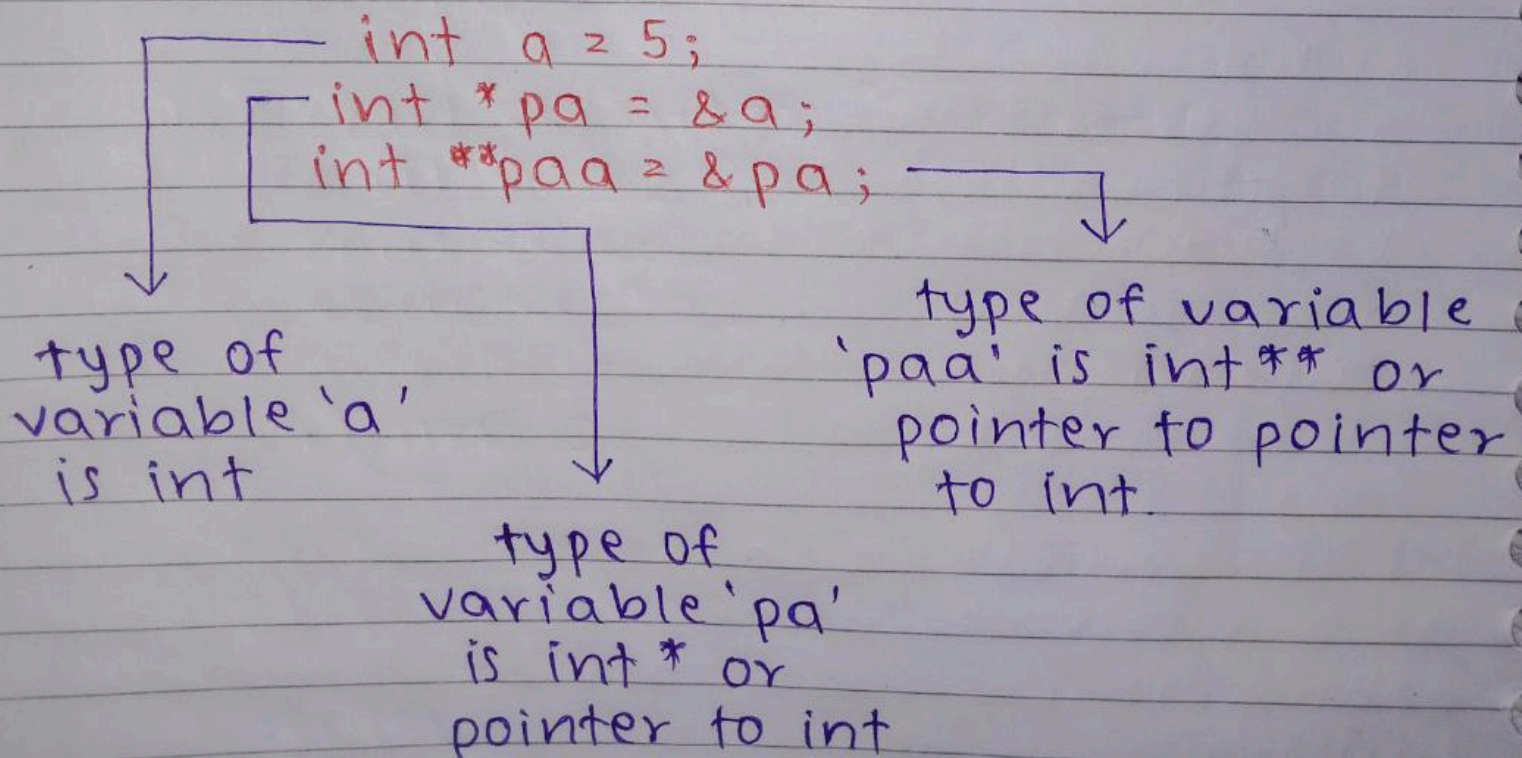 int a = 5;
int *pa = &a;
int **paa = &pa;
type of
variable 'a'
is int
type of
variable 'pa'
is int * or
pointer to int
type of variable
'paa' is int ** or
pointer to pointer
to int.